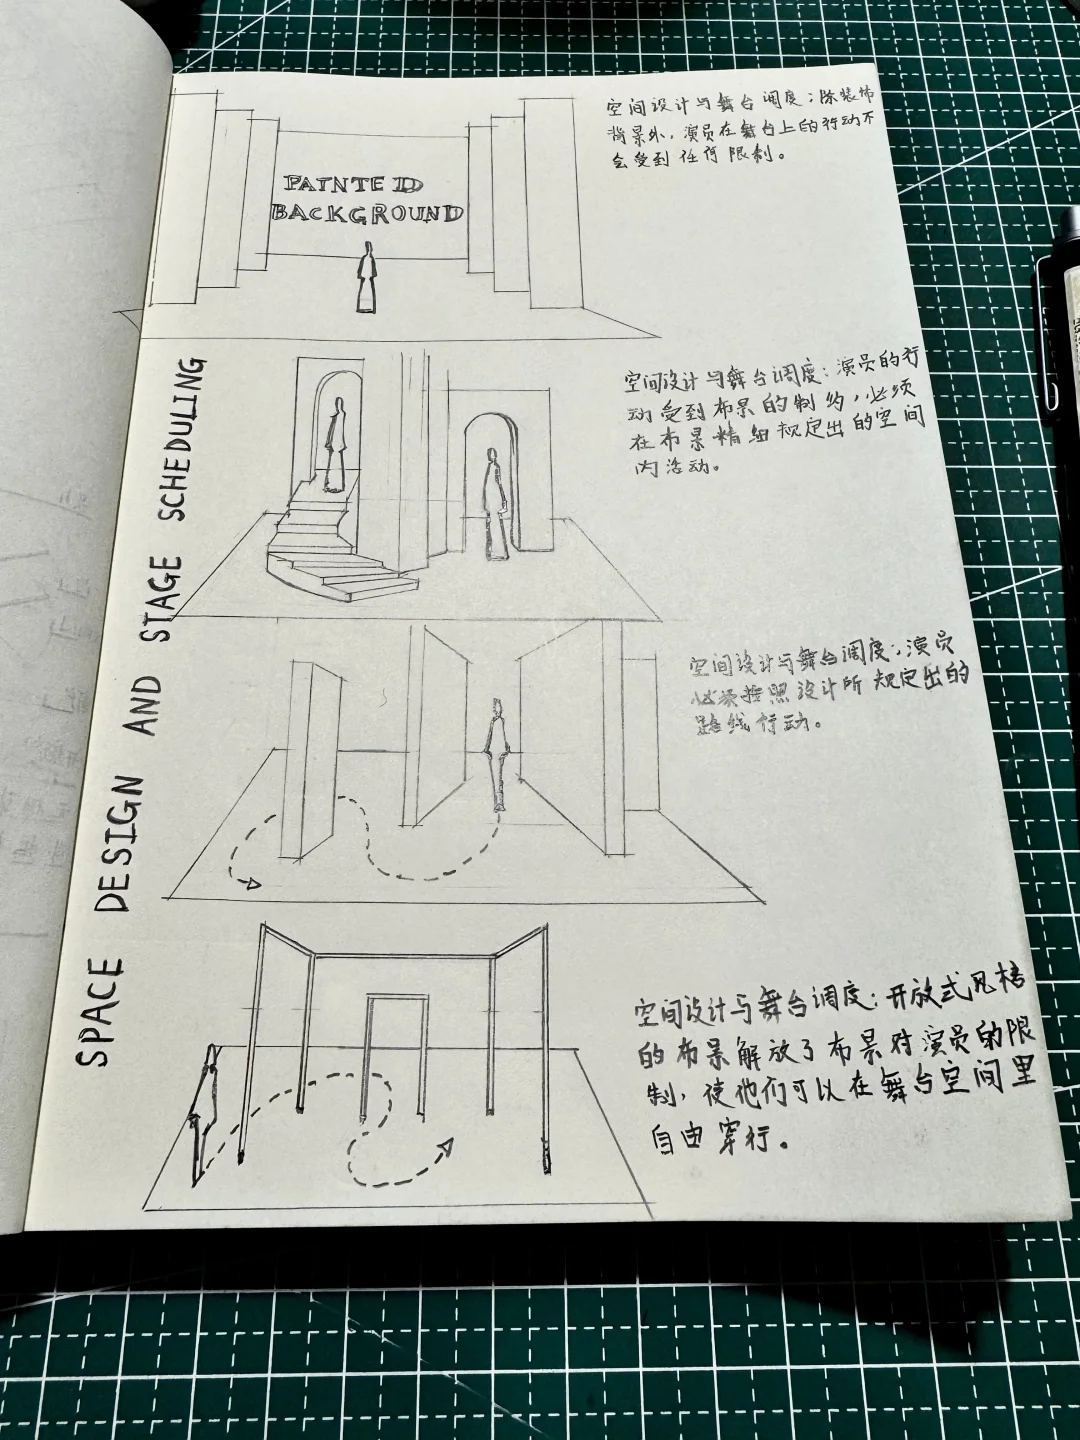 空间设计与舞台调度：除装饰
背景外，演员在舞台上的行动不
会受到任何限制。
PAINTED
BACKGROUND
空间设计与舞台调度：演员的行
动受到布景的制约，必须
在布景精细规定出的空间
内活动。
SPACE DESIGN AND STAGE SCHEDULING
空间设计与舞台调度：演员
必须按照设计所规定出的
路线行动。
空间设计与舞台调度：开放式风格
的布景解放了布景对演员的限
制，使他们可以在舞台空间里
自由穿行。